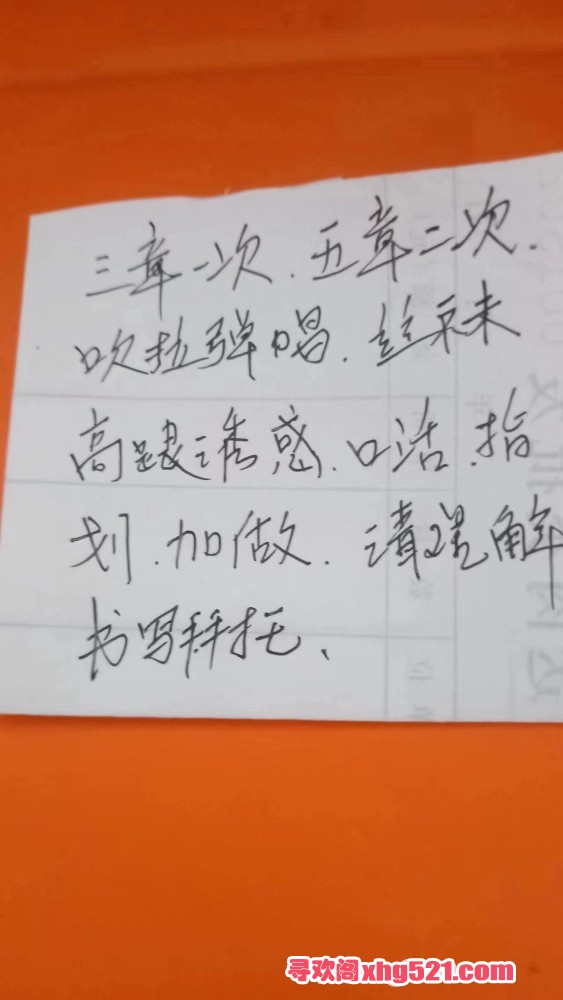 三章一次、五章二次.
吹拉弹唱、丝袜
高跟诱惑、口活、指
划、加做、请理解
书写拜托、
寻欢阁xhg521.com